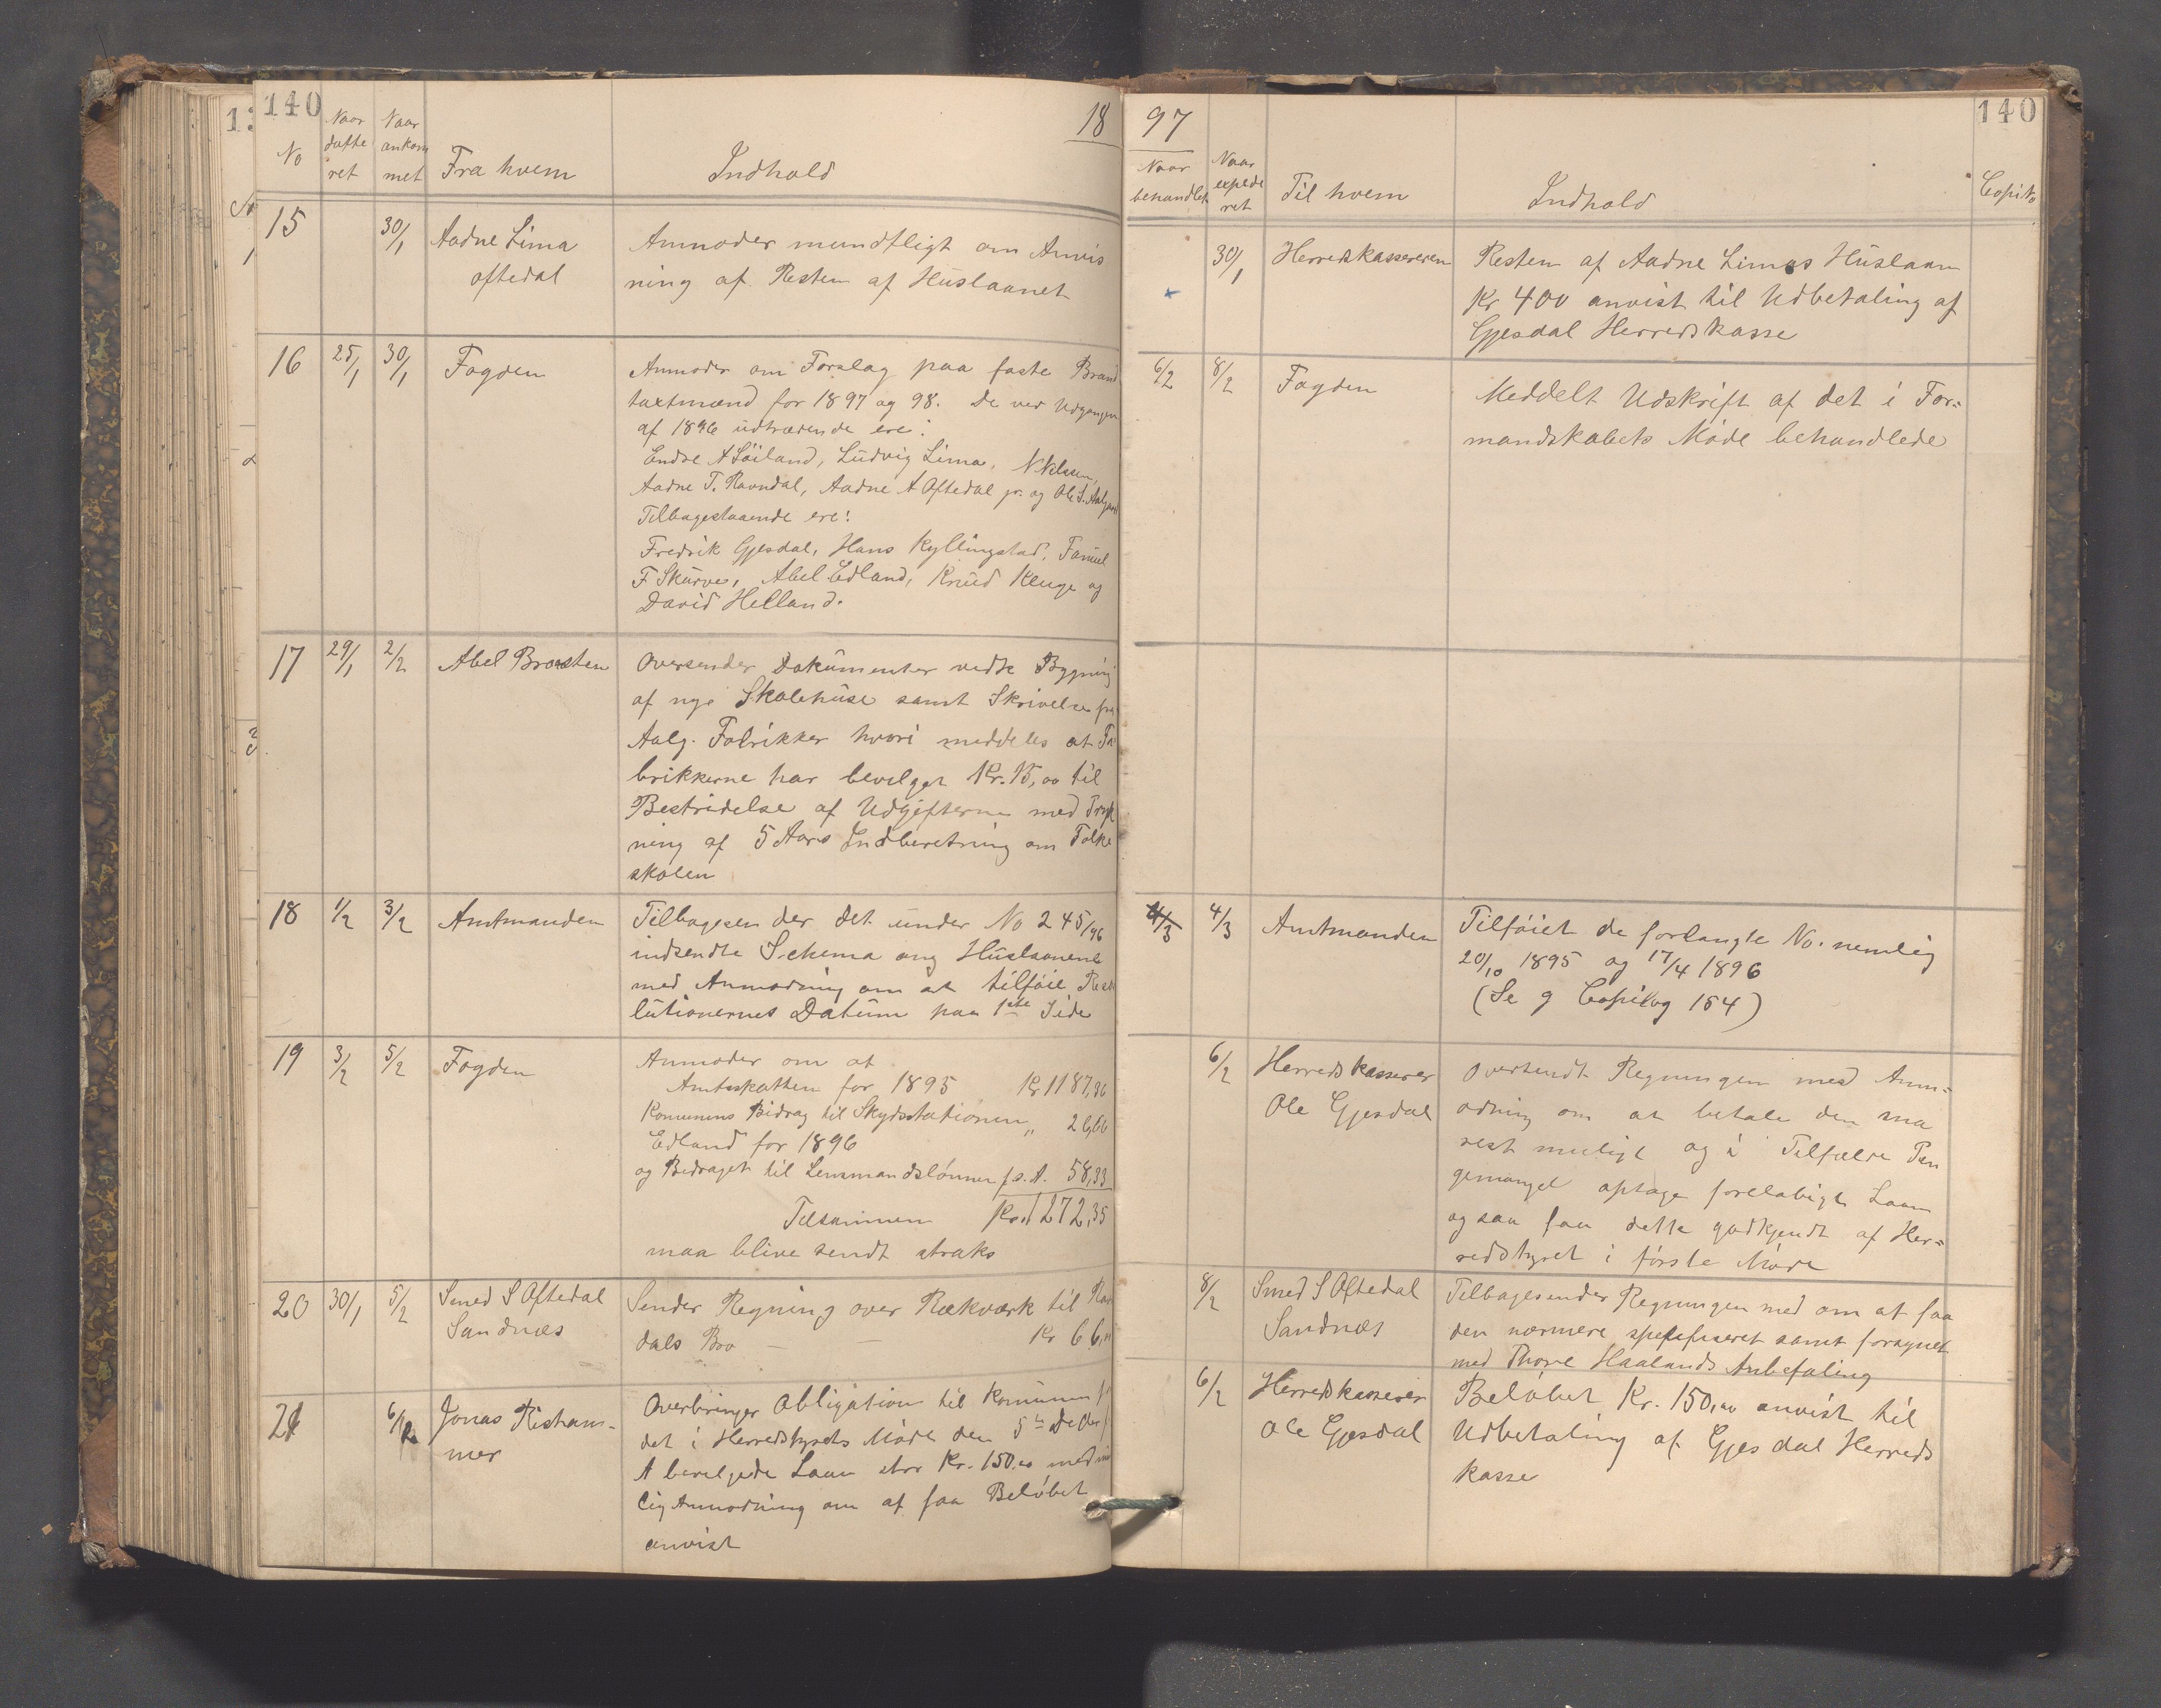 140
18
No
Naar datte ret
Naar ankom met
Fra hvem
Indhold
15
30/1
Aadne Lima
oftedal
Anmoder mundtligt om Anvis
ning af Resten af Huslaanet
16
25/1
30/1
Fogden
Anmoder om Forslag paa faste Brand
taxtmænd for 1897 og 98. De ved Udgangen
af 1896 udtrædende ere:
Endre A Söiland, Ludvig Lima, N Nilsen,
Aadne T. Ravndal, Aadne A Oftedal jr. og Ole S. Aalgaard
Tilbagestaaende ere:
Fredrik Gjesdal, Hans Kyllingstad,
F Skurve, Abel Edland, Knud Kluge og
David Helland.
17
29/1
2/2
Abel Brodsten
Oversender Dokumenter vedk Bygning
af nye Skolehuse samt Skrivelse fra
Aalg. Fabrikker hvori meddeles at Fa
brikkerne har bevilget Kr. 15,00 til
Bestridelse af Udgifterne med Tryk
ning af 5 Aars Indberetning om Folke
skolen
18
1/2
3/2
Amtmanden
Tilbagesender det under No 245/96
indsendte Schema ang Huslaanene
med Anmodning om at tilføie Reso
lutionernes Datum paa 1ste Side
19
3/2
5/2
Fogden
Anmoder om at
Amtsskatten for 1895 Kr 1187,36
Komunens Bidrag til Skydsstationen
Edland for 1896 " 26,66
og Bidraget til Lensmandslønnen f. s. A. 58,33
Tilsammen Kr. 1272,35
maa blive sendt straks
20
30/1
5/2
Smed S Oftedal
Sandnæs
Sender Regning over Rækværk til
dals Bro — Kr 66,
21
6/2
Jonas Risham-
mer
Overbringer Obligation til Komunen
det i Herredstyrets Møde den 5te Decbr
A bevilgede Laan stor Kr. 150,00 med
lig Anmodning om at faa Beløbet
anvist
97
140
Naar behandlet
Naar expede ret
Til hvem
Indhold
Copi No
30/1
Herredskassereren
Resten af Aadne Limas Huslaan
Kr 400 anvist til Udbetaling af
Gjesdal Herredskasse
6/2
8/2
Fogden
Meddelt Udskrift af det i For=
mandskabets Møde behandlede
4/3
4/3
Amtmanden
Tilføiet de forlangte No. nemlig
20/10 1895 og 17/4 1896
(Se g Copibog 154)
6/2
Herredskasserer
Ole Gjesdal
Oversendt Regningen med Anm=
odning om at betale den sna
rest muligt og i Tilfælde Pen
gemangel optage foreløbigt Laan
og saa faa dette godkjendt af Her=
redstyret i første Møde
8/2
Smed S Oftedal
Sandnæs
Tilbagesender Regningen med om at faa
den nærmere spesifiseret samt forsynet
med Thore Haalands Anbefaling
6/2
Herredskasserer
Ole Gjesdal
Beløbet Kr. 150,00 anvist til
Udbetaling af Gjesdal Herreds
kasse